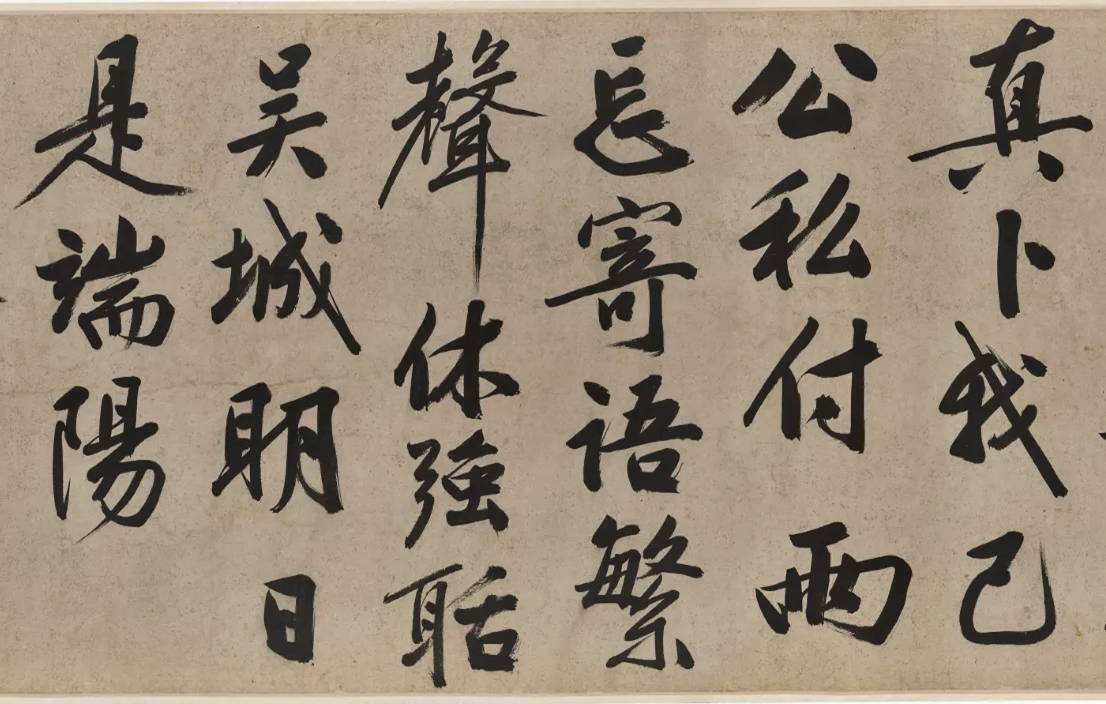 真卜我已
公私付兩
忘寄語繁
聲休強聒
吴城明日
是端陽